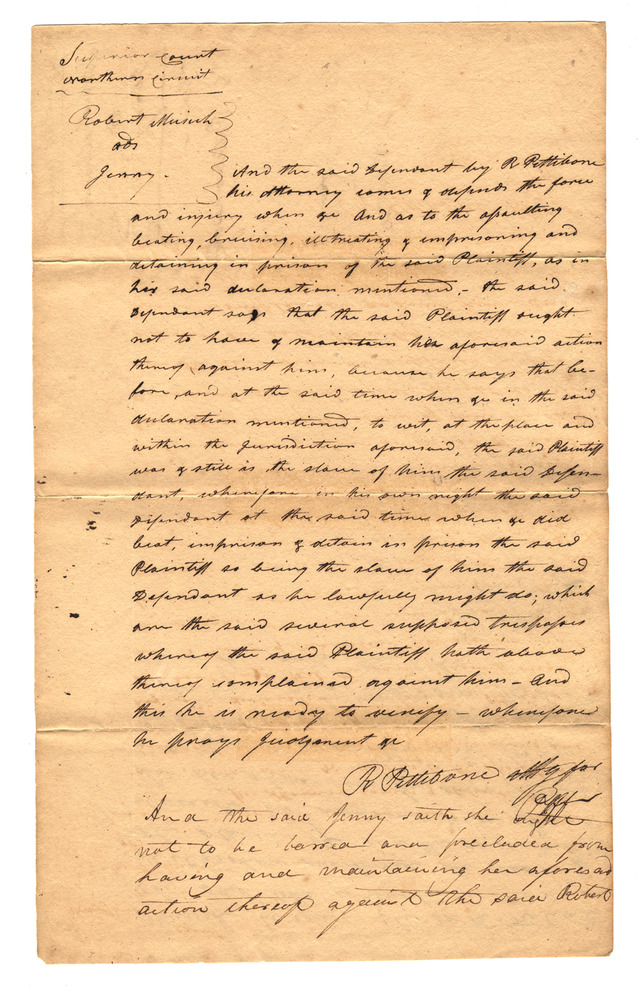 Superior Court
Northern Circuit
Robert Musick
ads
Jenny.
And the said Defendant by R Pettibone
his attorney comes & defends the force
and injury when &c And as to the assaulting
beating, bruising, illtreating & imprisoning and
detaining in prison of the said Plaintiff, as in
her said declaration mentioned,- the said
Defendant says that the said Plaintiff ought
not to have & maintain her aforesaid action
thereof against him, because he says that be-
fore, and at the said time when &c in the said
declaration mentioned, to wit, at the place and
within the Jurisdiction aforesaid, the said Plaintiff
was & still is the slave of him the said Defen-
dant, wherefore in his own right the said
Defendant at the said time when &c did
beat, imprison & detain in prison the said
Plaintiff so being the slave of him the said
Defendant as he lawfully might do; which
are the said several supposed trespasses
whereof the said Plaintiff hath above
thereof complained against him - And
this he is ready to verify - wherefore
he prays Judgement &c
R Pettibone atty for
And the said Jenny saith she ought
not to be barred and precluded from
having and maintaining her aforesaid
action thereof against the said Robert